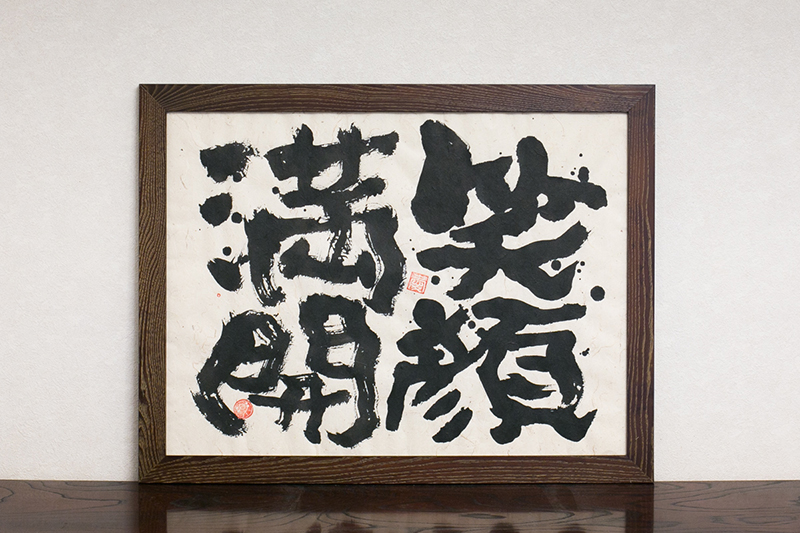 笑顔
満開